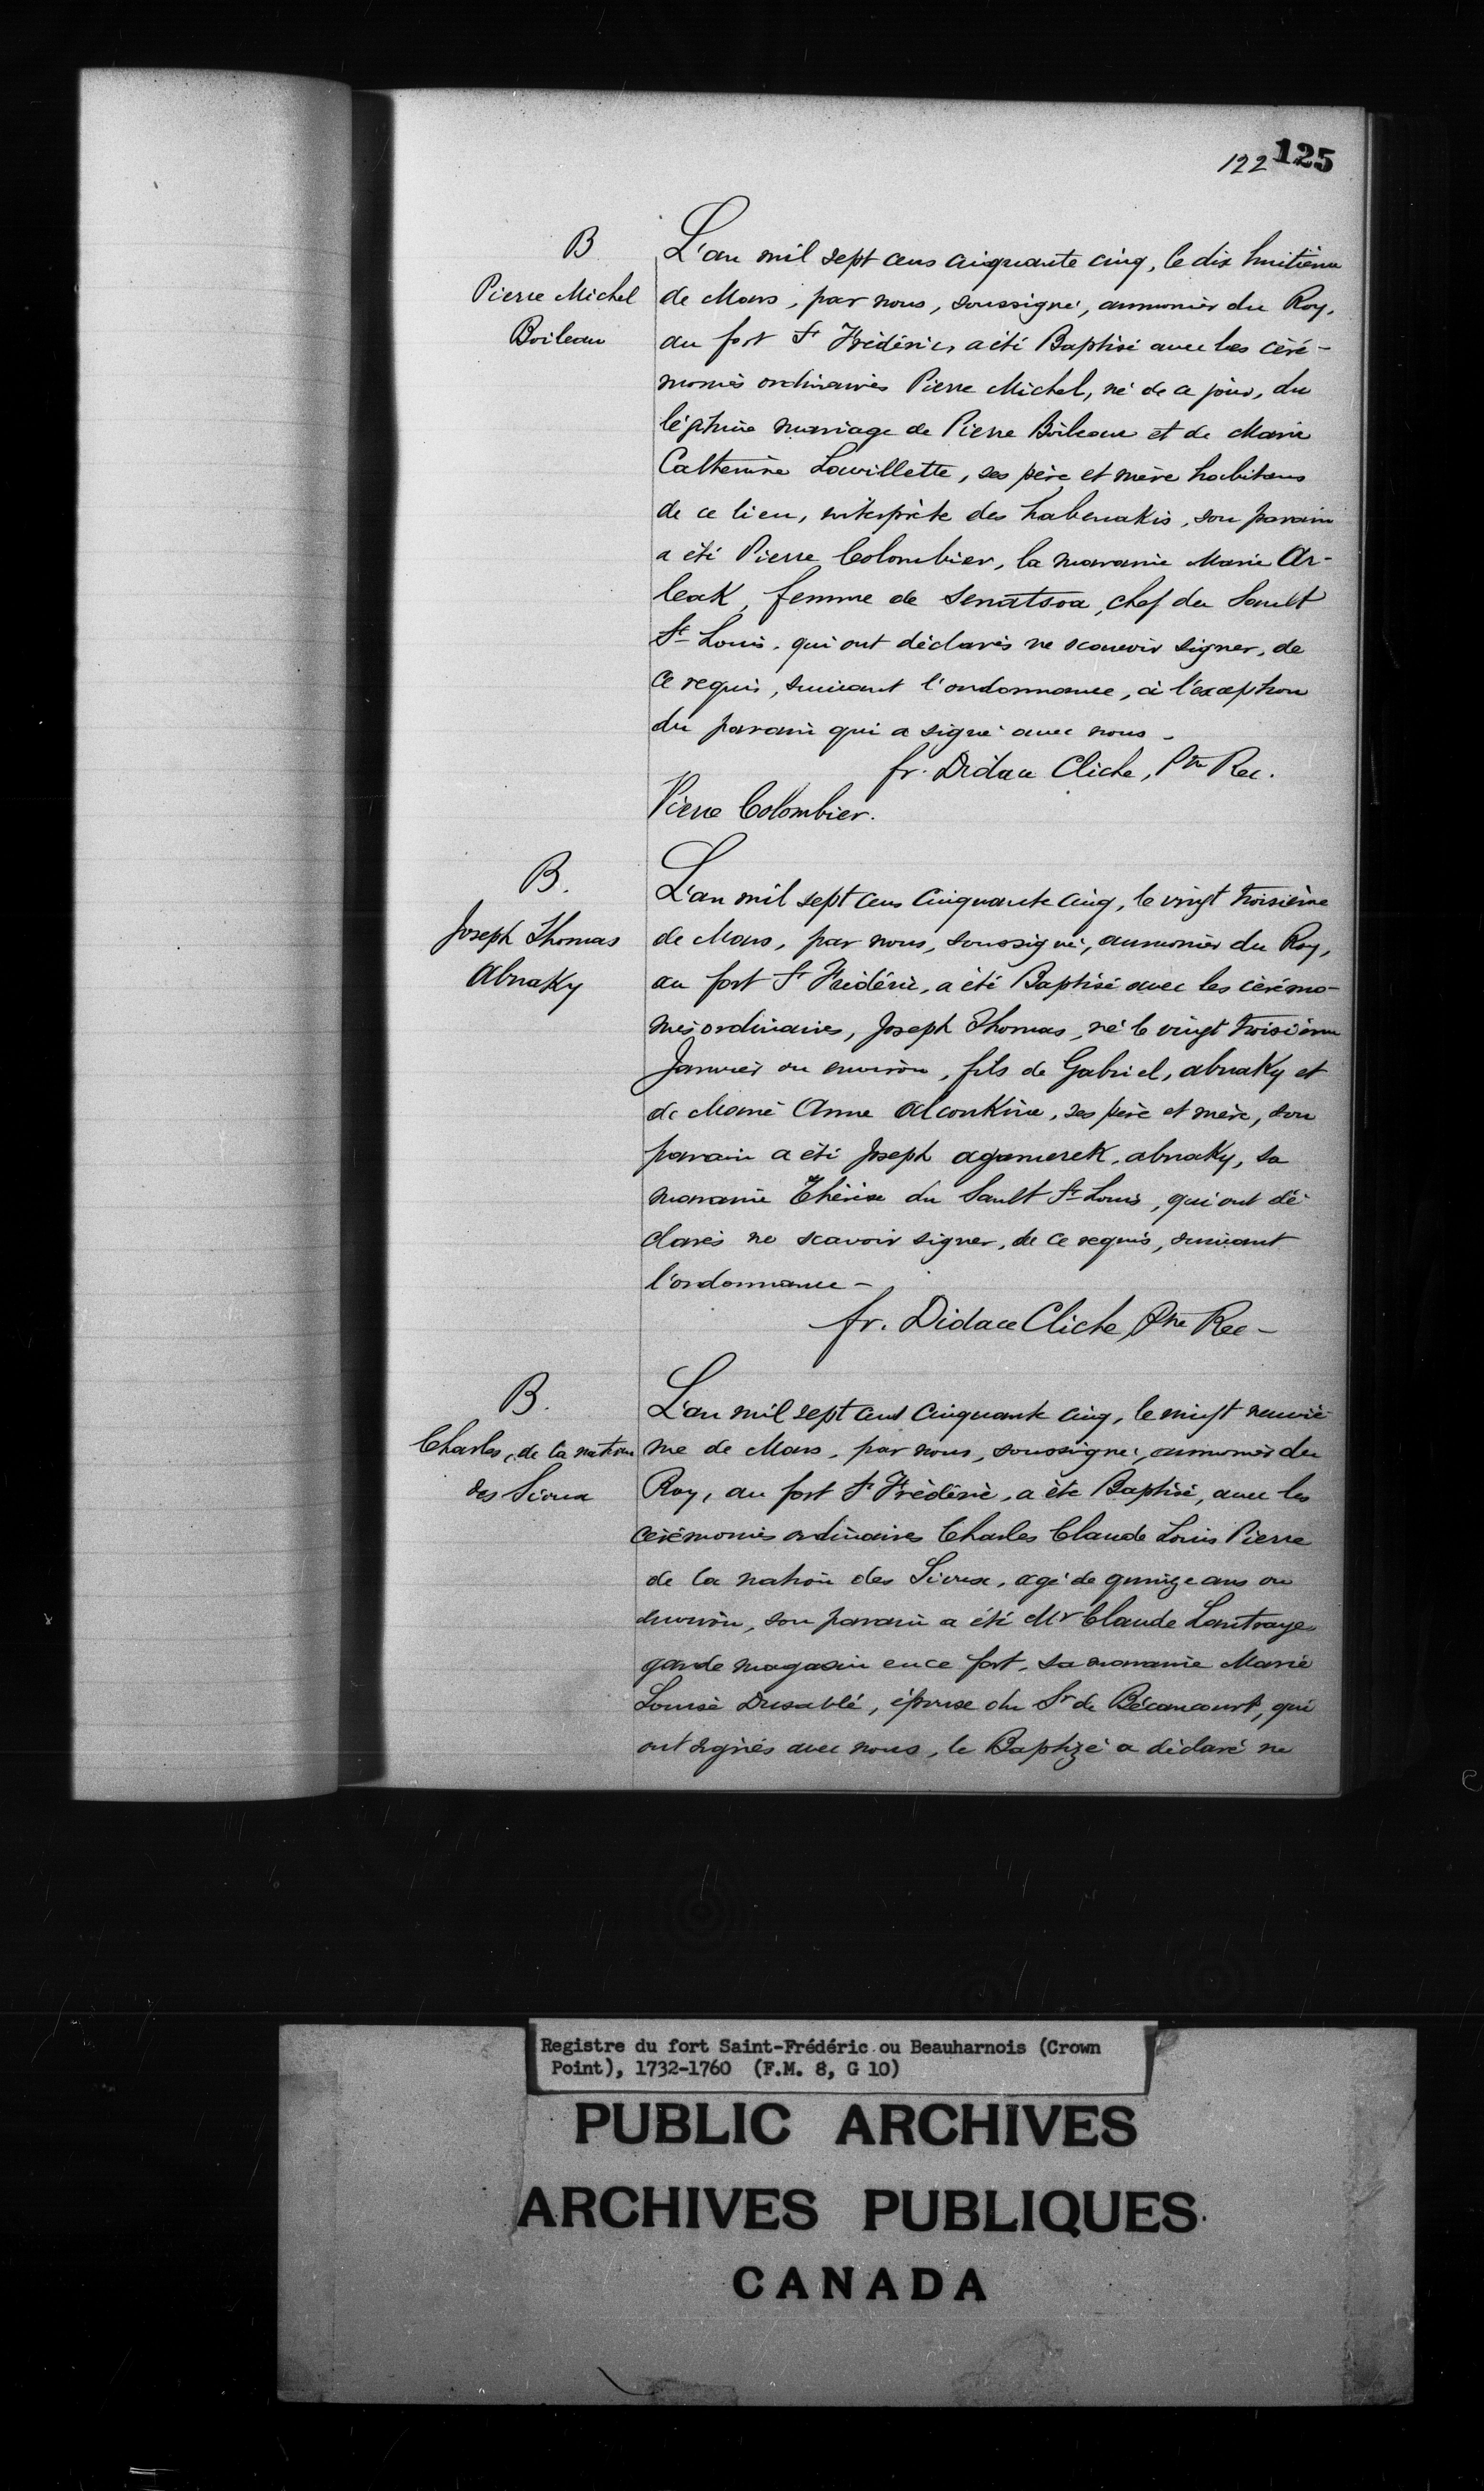 122 125
B
Pierre Michel
Boileau
L'an mil sept cens cinquante cinq, le dix huitième
de Mars, par nous, soussigné, aumonier du Roy,
au fort St Frédéric, a été Baptisé avec les céré-
monies ordinaires Pierre Michel, né de ce jour, du
légitime mariage de Pierre Boileau et de Marie
Catherine Louvillette, ses père et mère habitans
de ce lieu, interprète des habenakis, son parain
a été Pierre Colombier, la maraine Marie Ar-
leak, femme de Senatsoa, chef du Sault
St Louis, qui ont déclarés ne scavoir signer, de
ce requis, suivant l'ordonnance, à l'exception
du parain qui a signé avec nous -
fr. Didace Cliche, Ptre Rec.
Pierre Colombier.
B.
Joseph Thomas
Abnaky
L'an mil sept cens cinquante cinq, le vingt troisième
de Mars, par nous, soussigné, aumonier du Roy,
au fort St Frédéric, a été Baptisé avec les cérémo-
nies ordinaires, Joseph Thomas, né le vingt troisième
Janvier ou environ, fils de Gabriel, abnaky et
de Marie Anne Alconkine, ses père et mère, son
parain a été Joseph agamerek, abnaky, sa
maraine Thérèse du Sault St Louis, qui ont dé
clarés ne scavoir signer, de ce requis, suivant
l'ordonnance -
fr. Didace Cliche Ptre Rec -
B.
Charles, de la nation
des Sioux
L'an mil sept cens cinquante cinq, le vingt neuviè
me de Mars, par nous, soussigné, aumonier du
Roy, au fort St Frédéric, a été Baptisé, avec les
cérémonies ordinaires Charles Claude Louis Pierre
de la nation des Sioux, agé de quinze ans ou
environ, son parain a été Mr Claude Lantraye
garde magasin en ce fort, sa maraine Marie
Louise Dusablé, épouse du Sr de Bécancourt, qui
ont signés avec nous, le Baptizé a déclaré ne
Registre du fort Saint-Frédéric ou Beauharnois (Crown
Point), 1732-1760 (F.M. 8, G 10)
PUBLIC ARCHIVES
ARCHIVES PUBLIQUES
CANADA